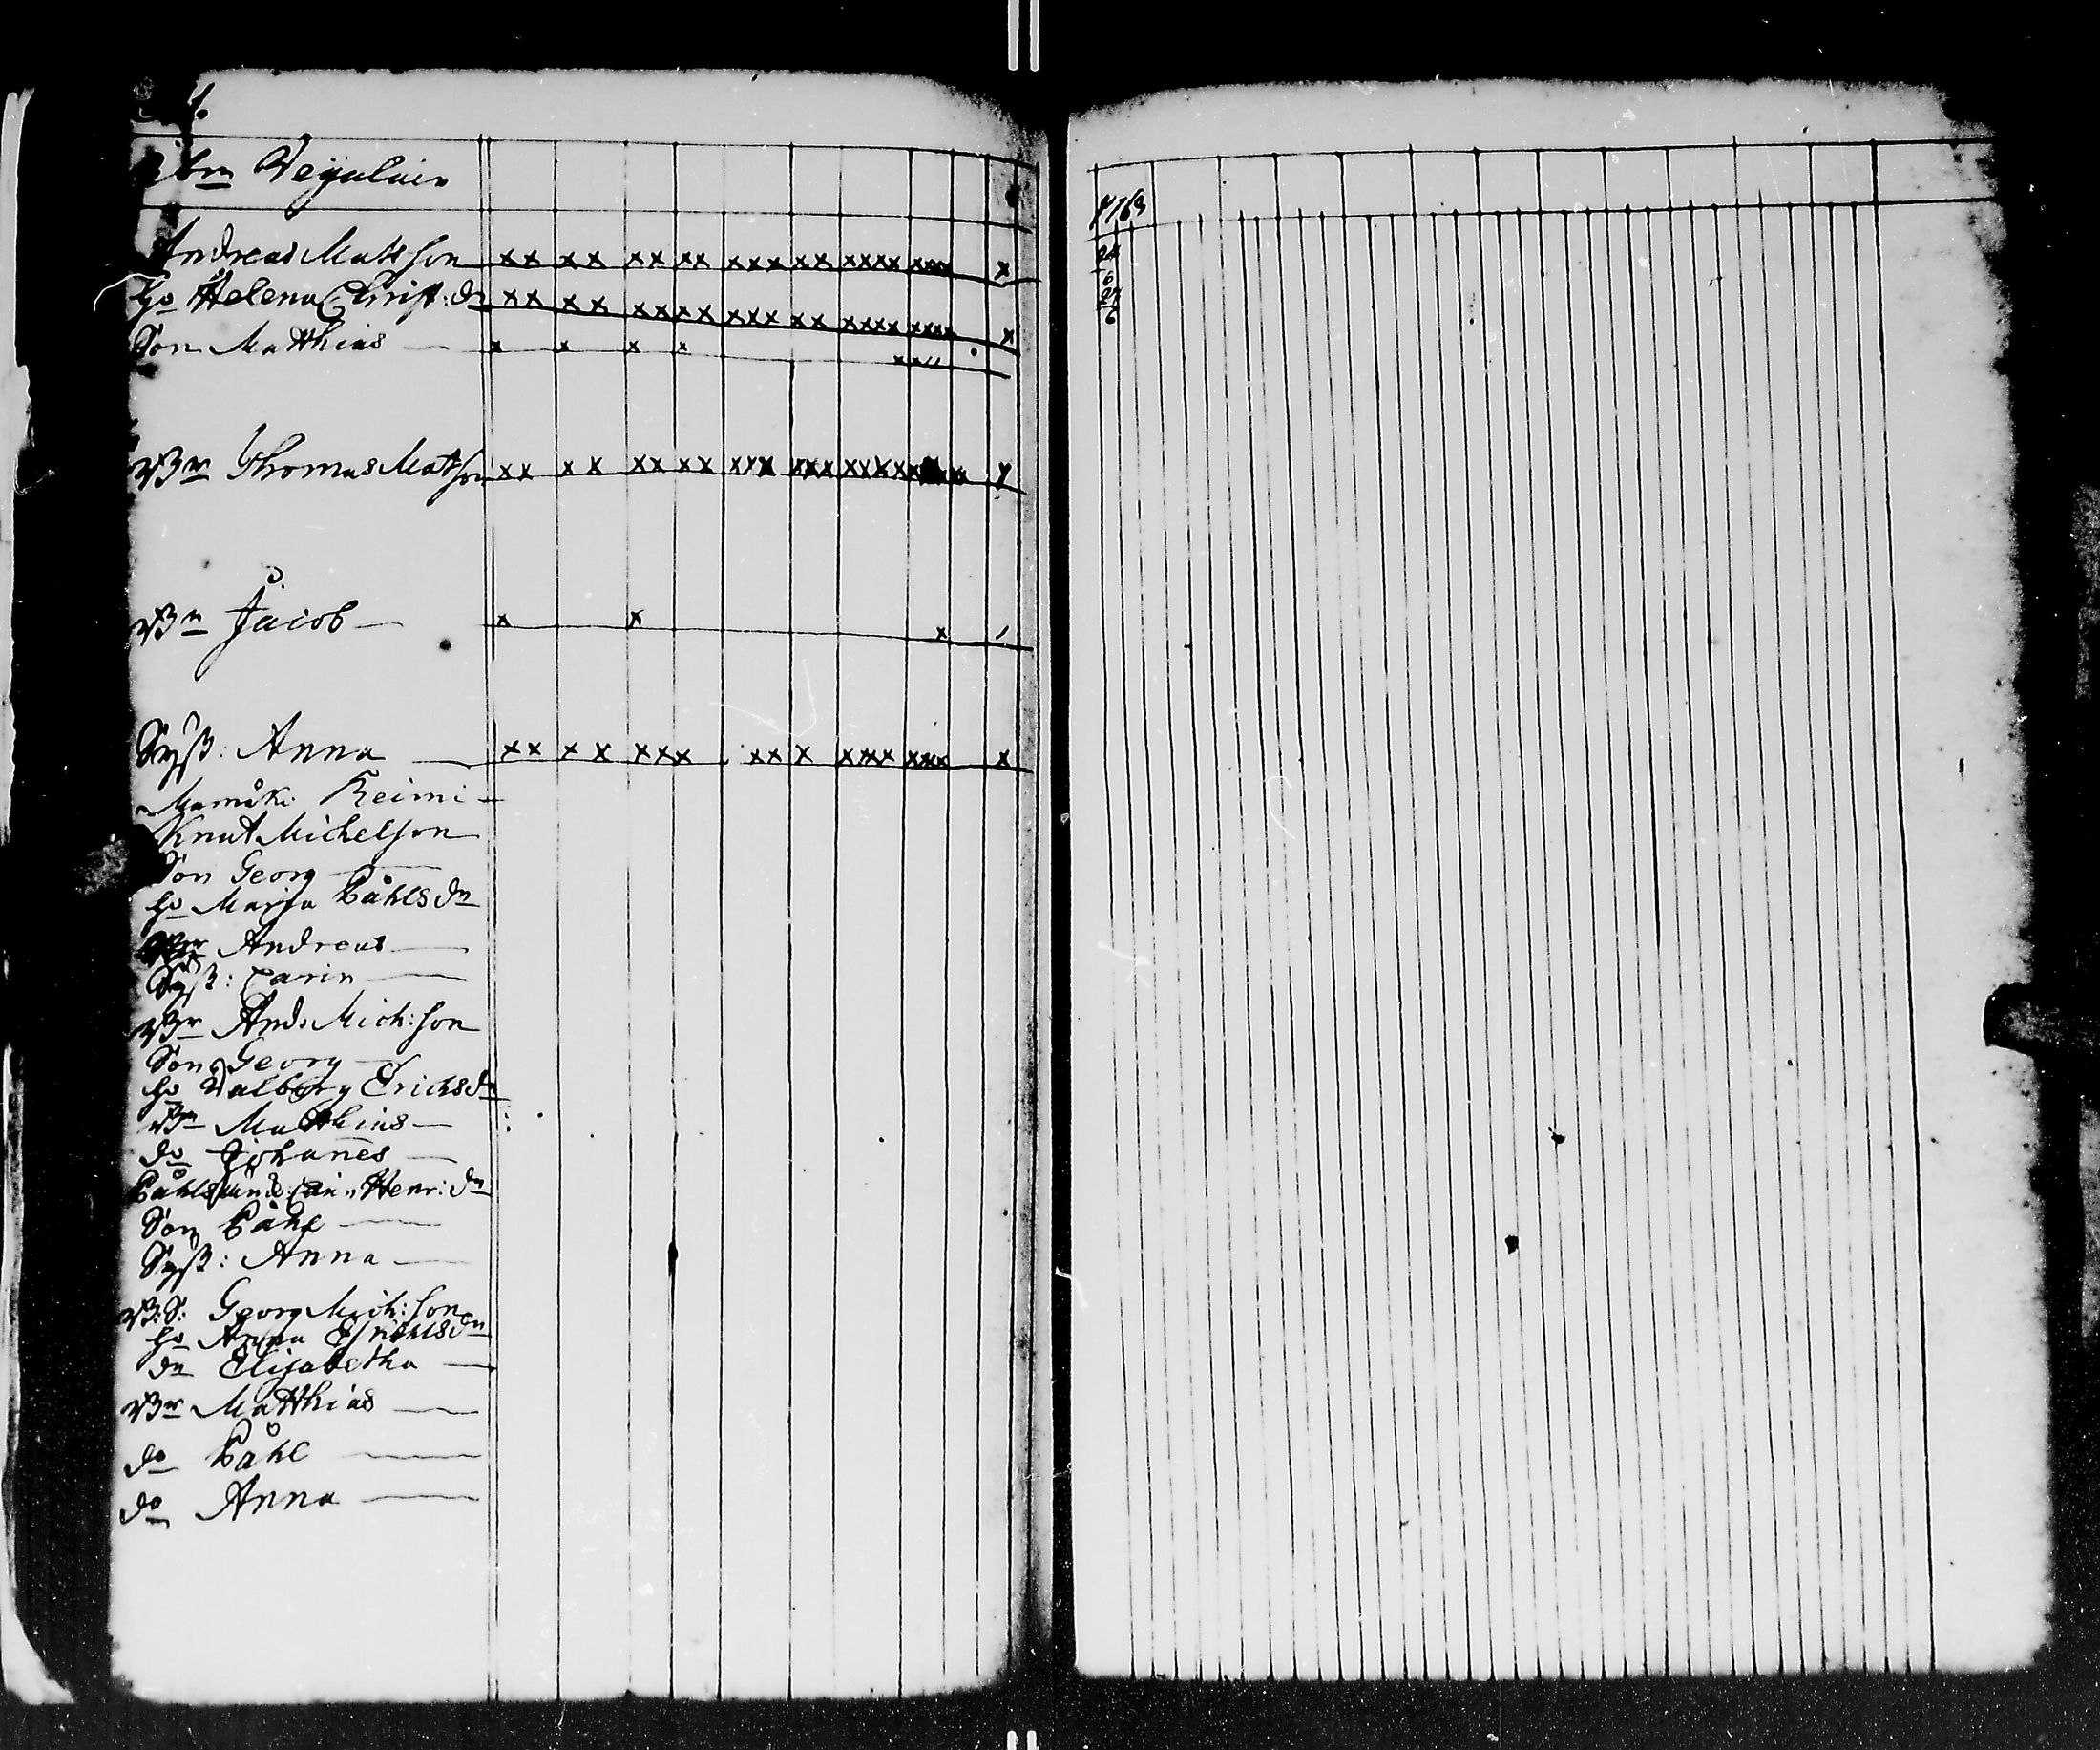 1.
Veijalain
Andreas Matsson xx xx xx xx xxx xx xxxx xxxx x
Ho Helena Christ: dr xx xx xx xx xxx xx xxxx xxxx x
Son Matthias x x x x xx
Br Thomas Matsson xx xx xx xx xxx xxx xxxx x
Br Jacob x x x
Syst: Anna xx xx xxx xx x xxx xxx x
Reimi
Knut Michelson
Son Georg
Ho Maria Påhlsdr
Br Andreas
Syst: Carin
Br And: Mich:son
Son Georg
Ho Valborg Erichsdr
Br Matthias
do Johanes
Henr: dr
Son Påhl
Syst: Anna
B:S: Georg Mich:son
Ho Anna
dr Elisabetha
Br Matthias
do Påhl
do Anna
1763